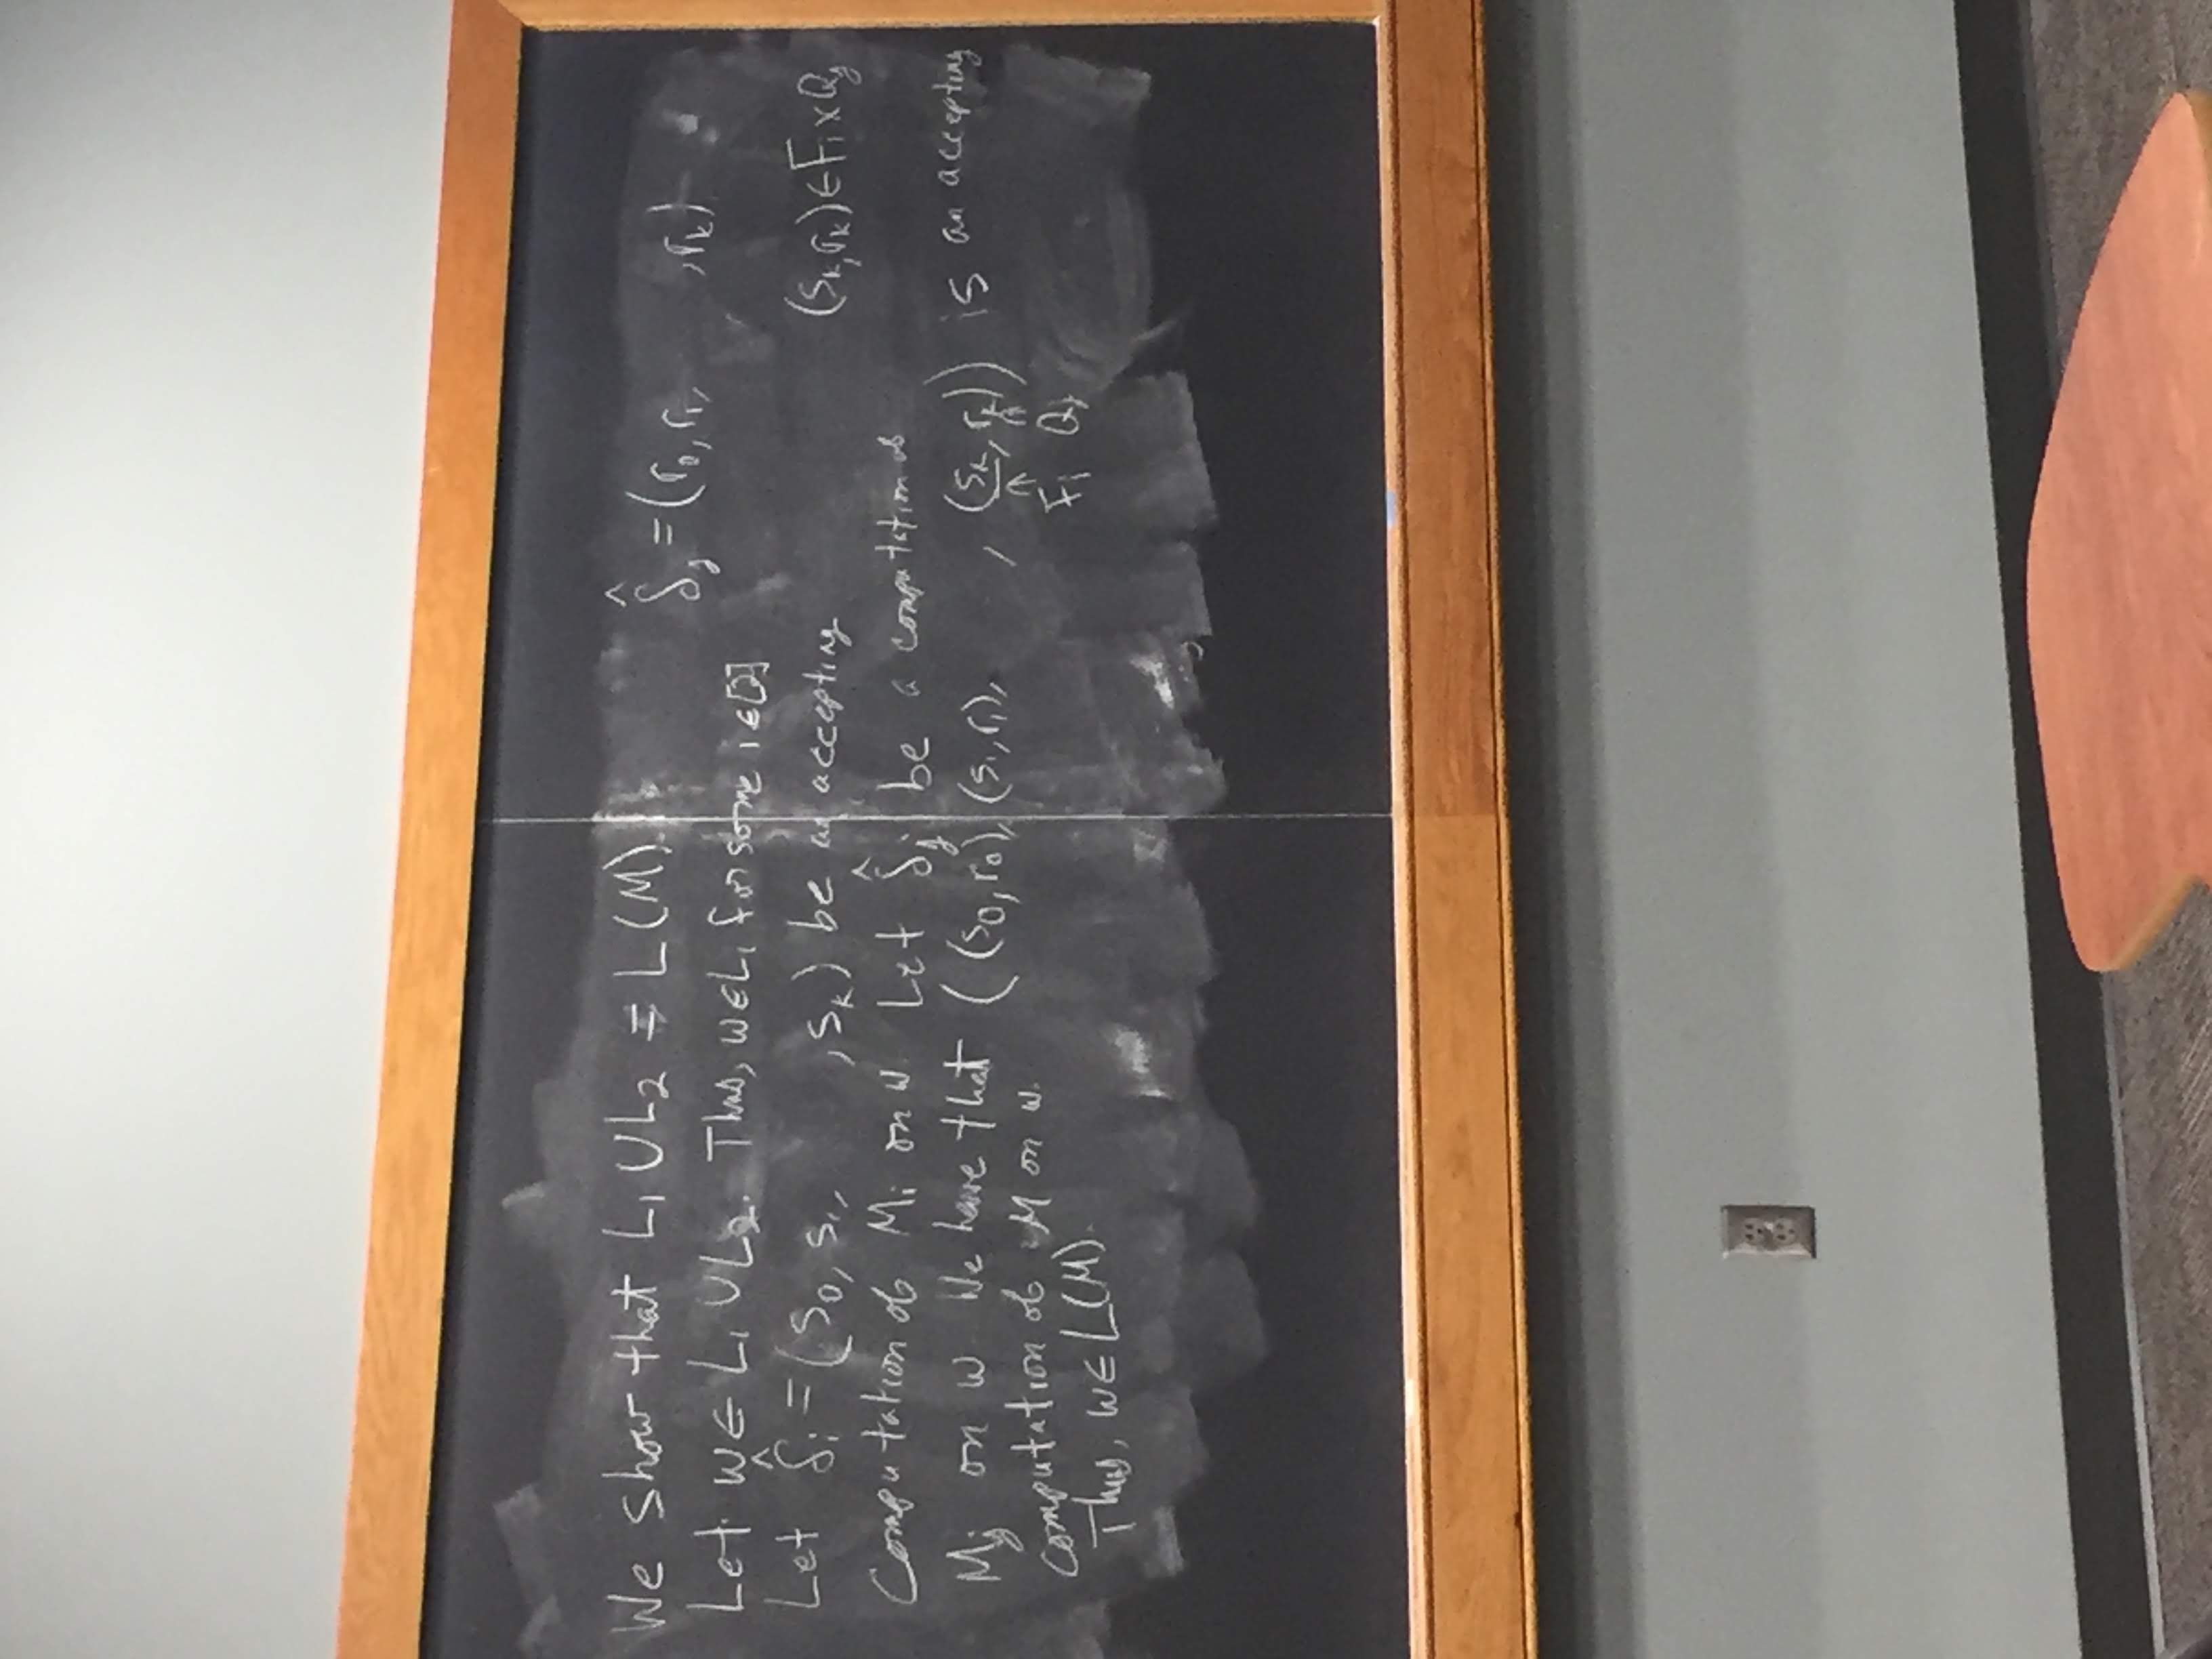 We show that L₁ ∪ L₂ = L(M).
Let w ∈ L₁ ∪ L₂. Thus, w ∈ Lᵢ for some i ∈ [2]
Let δ̂ᵢ = (S₀, S₁,      , Sₖ) be an accepting
Computation of Mᵢ on w. Let δ̂ⱼ be a computation of
Mⱼ on w. We have that ((S₀, r₀), (S₁, r₁),      , (Sₖ, rₖ)) is an accepting
↑ ↑
Fᵢ Qⱼ
computation of M on w.
Thus, w ∈ L(M).
δ̂ⱼ = (r₀, r₁,      , rₖ)
(Sₖ, rₖ) ∈ Fᵢ × Qⱼ